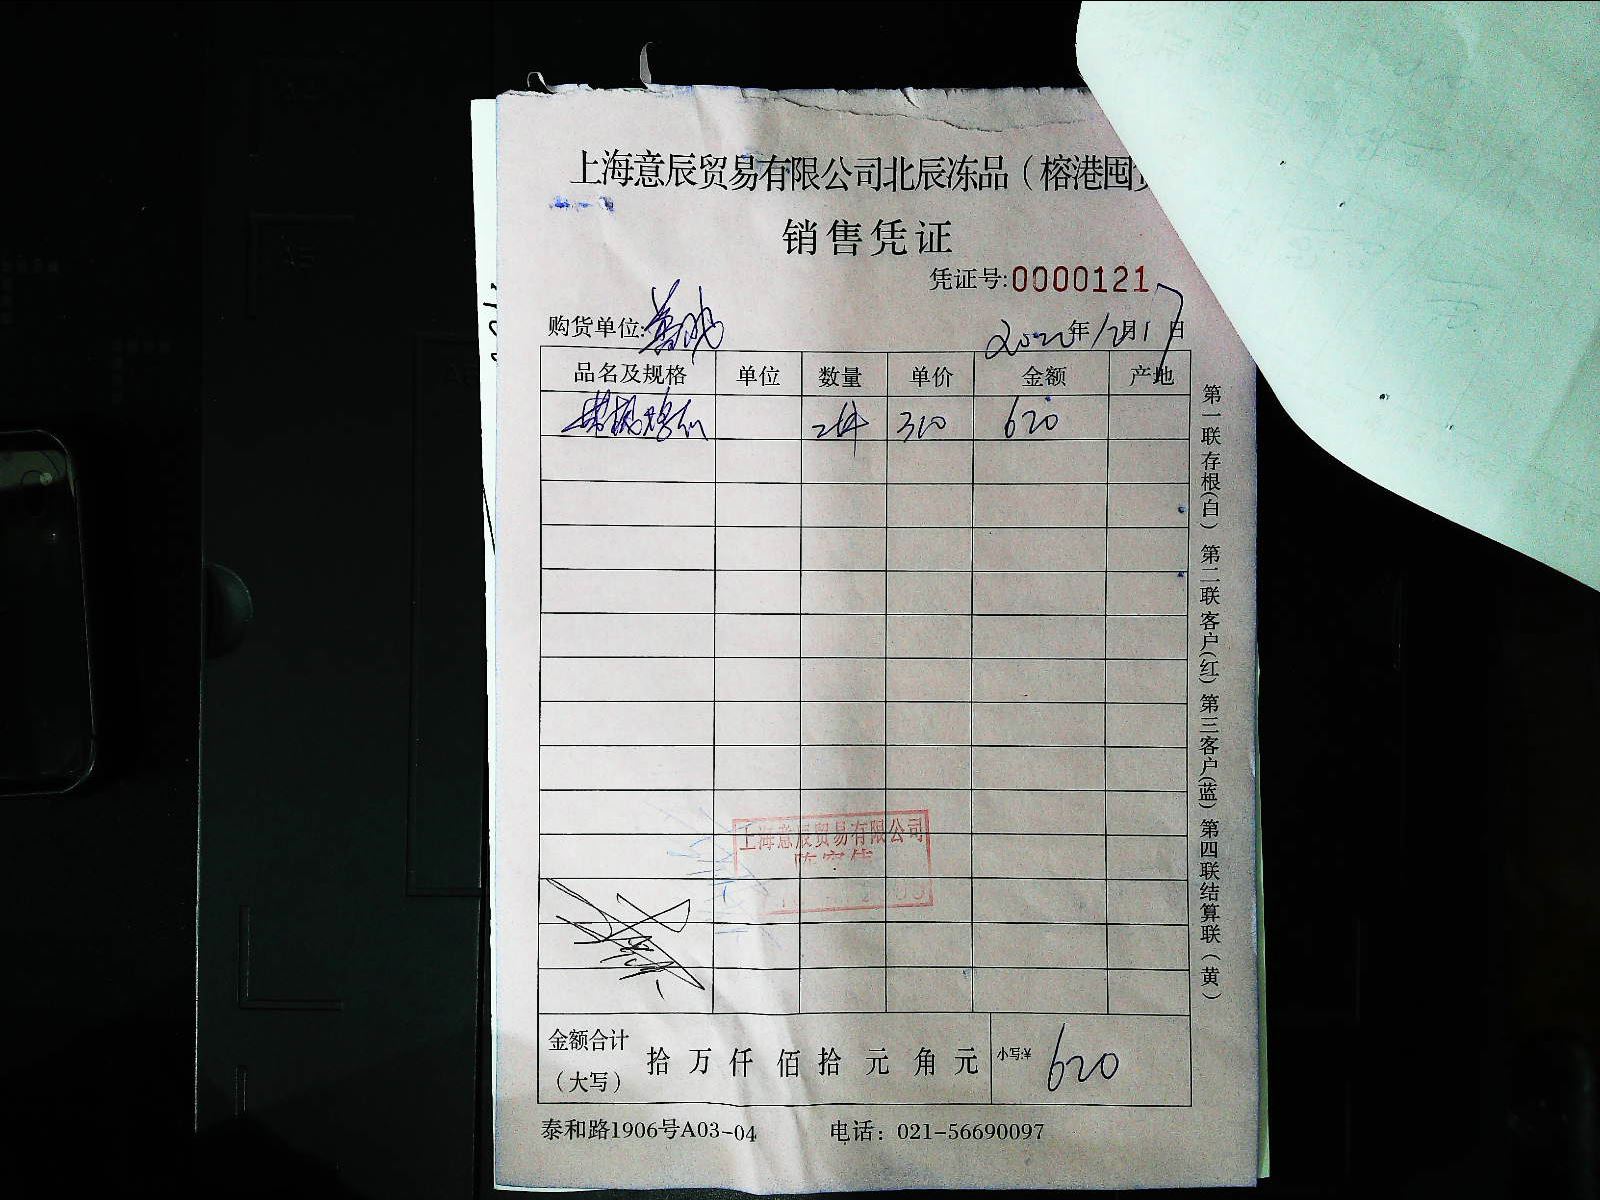 上海意辰贸易有限公司北辰冻品（榕港囤
销售凭证
凭证号:0000121
购货单位:
2022年12月17日
品名及规格 单位 数量 单价 金额 产地
2件 310 620
上海意辰贸易有限公司
金额合计（大写） 拾 万 仟 佰 拾 元 角 元 小写:¥ 620
泰和路1906号A03-04 电话：021-56690097
第一联存根(白) 第二联客户(红) 第三客户(蓝) 第四联结算联（黄）